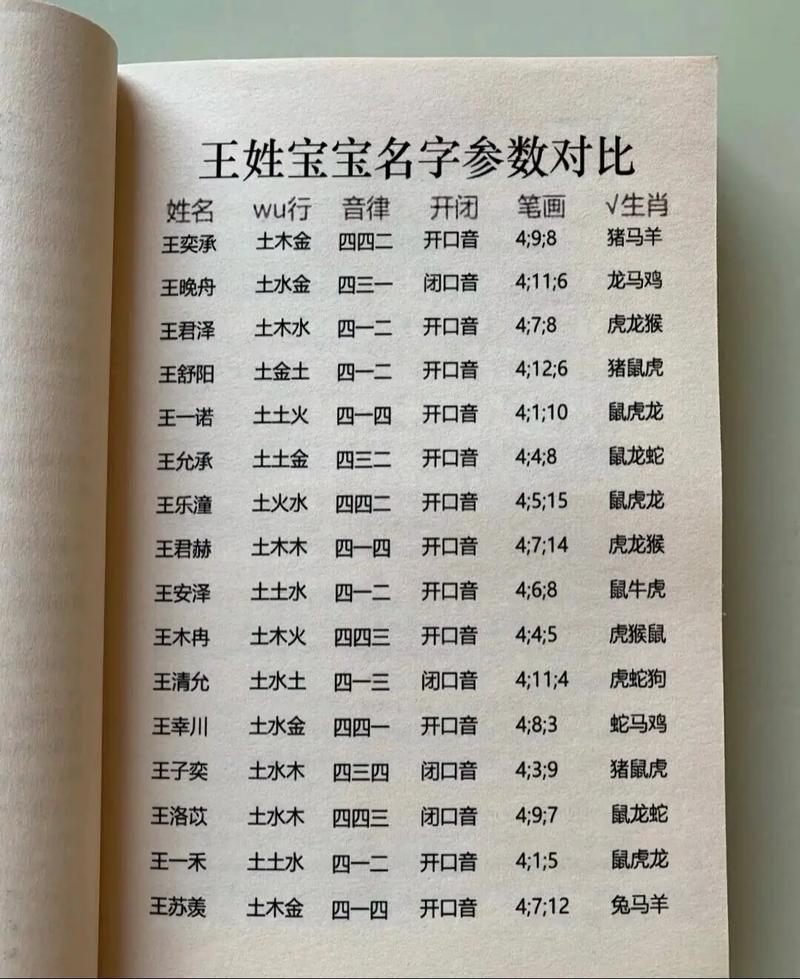 王姓宝宝名字参数对比
姓名 wu行 音律 开闭 笔画 √生肖
王奕承 土木金 四四二 开口音 4;9;8 猪马羊
王晚舟 土水金 四三一 闭口音 4;11;6 龙马鸡
王君泽 土木水 四一二 开口音 4;7;8 虎龙猴
王舒阳 土金土 四一二 开口音 4;12;6 猪鼠虎
王一诺 土土火 四一四 开口音 4;1;10 鼠虎龙
王允承 土土金 四三二 开口音 4;4;8 鼠龙蛇
王乐潼 土火水 四四二 开口音 4;5;15 鼠虎龙
王君赫 土木木 四一四 开口音 4;7;14 虎龙猴
王安泽 土土水 四一二 开口音 4;6;8 鼠牛虎
王木冉 土木火 四四三 开口音 4;4;5 虎猴鼠
王清允 土水土 四一三 闭口音 4;11;4 虎蛇狗
王幸川 土水金 四四一 开口音 4;8;3 蛇马鸡
王子奕 土水木 四三四 闭口音 4;3;9 猪鼠虎
王洛苡 土水木 四四三 闭口音 4;9;7 鼠龙蛇
王一禾 土土水 四一二 开口音 4;1;5 鼠虎龙
王苏羡 土木金 四一四 开口音 4;7;12 兔马羊